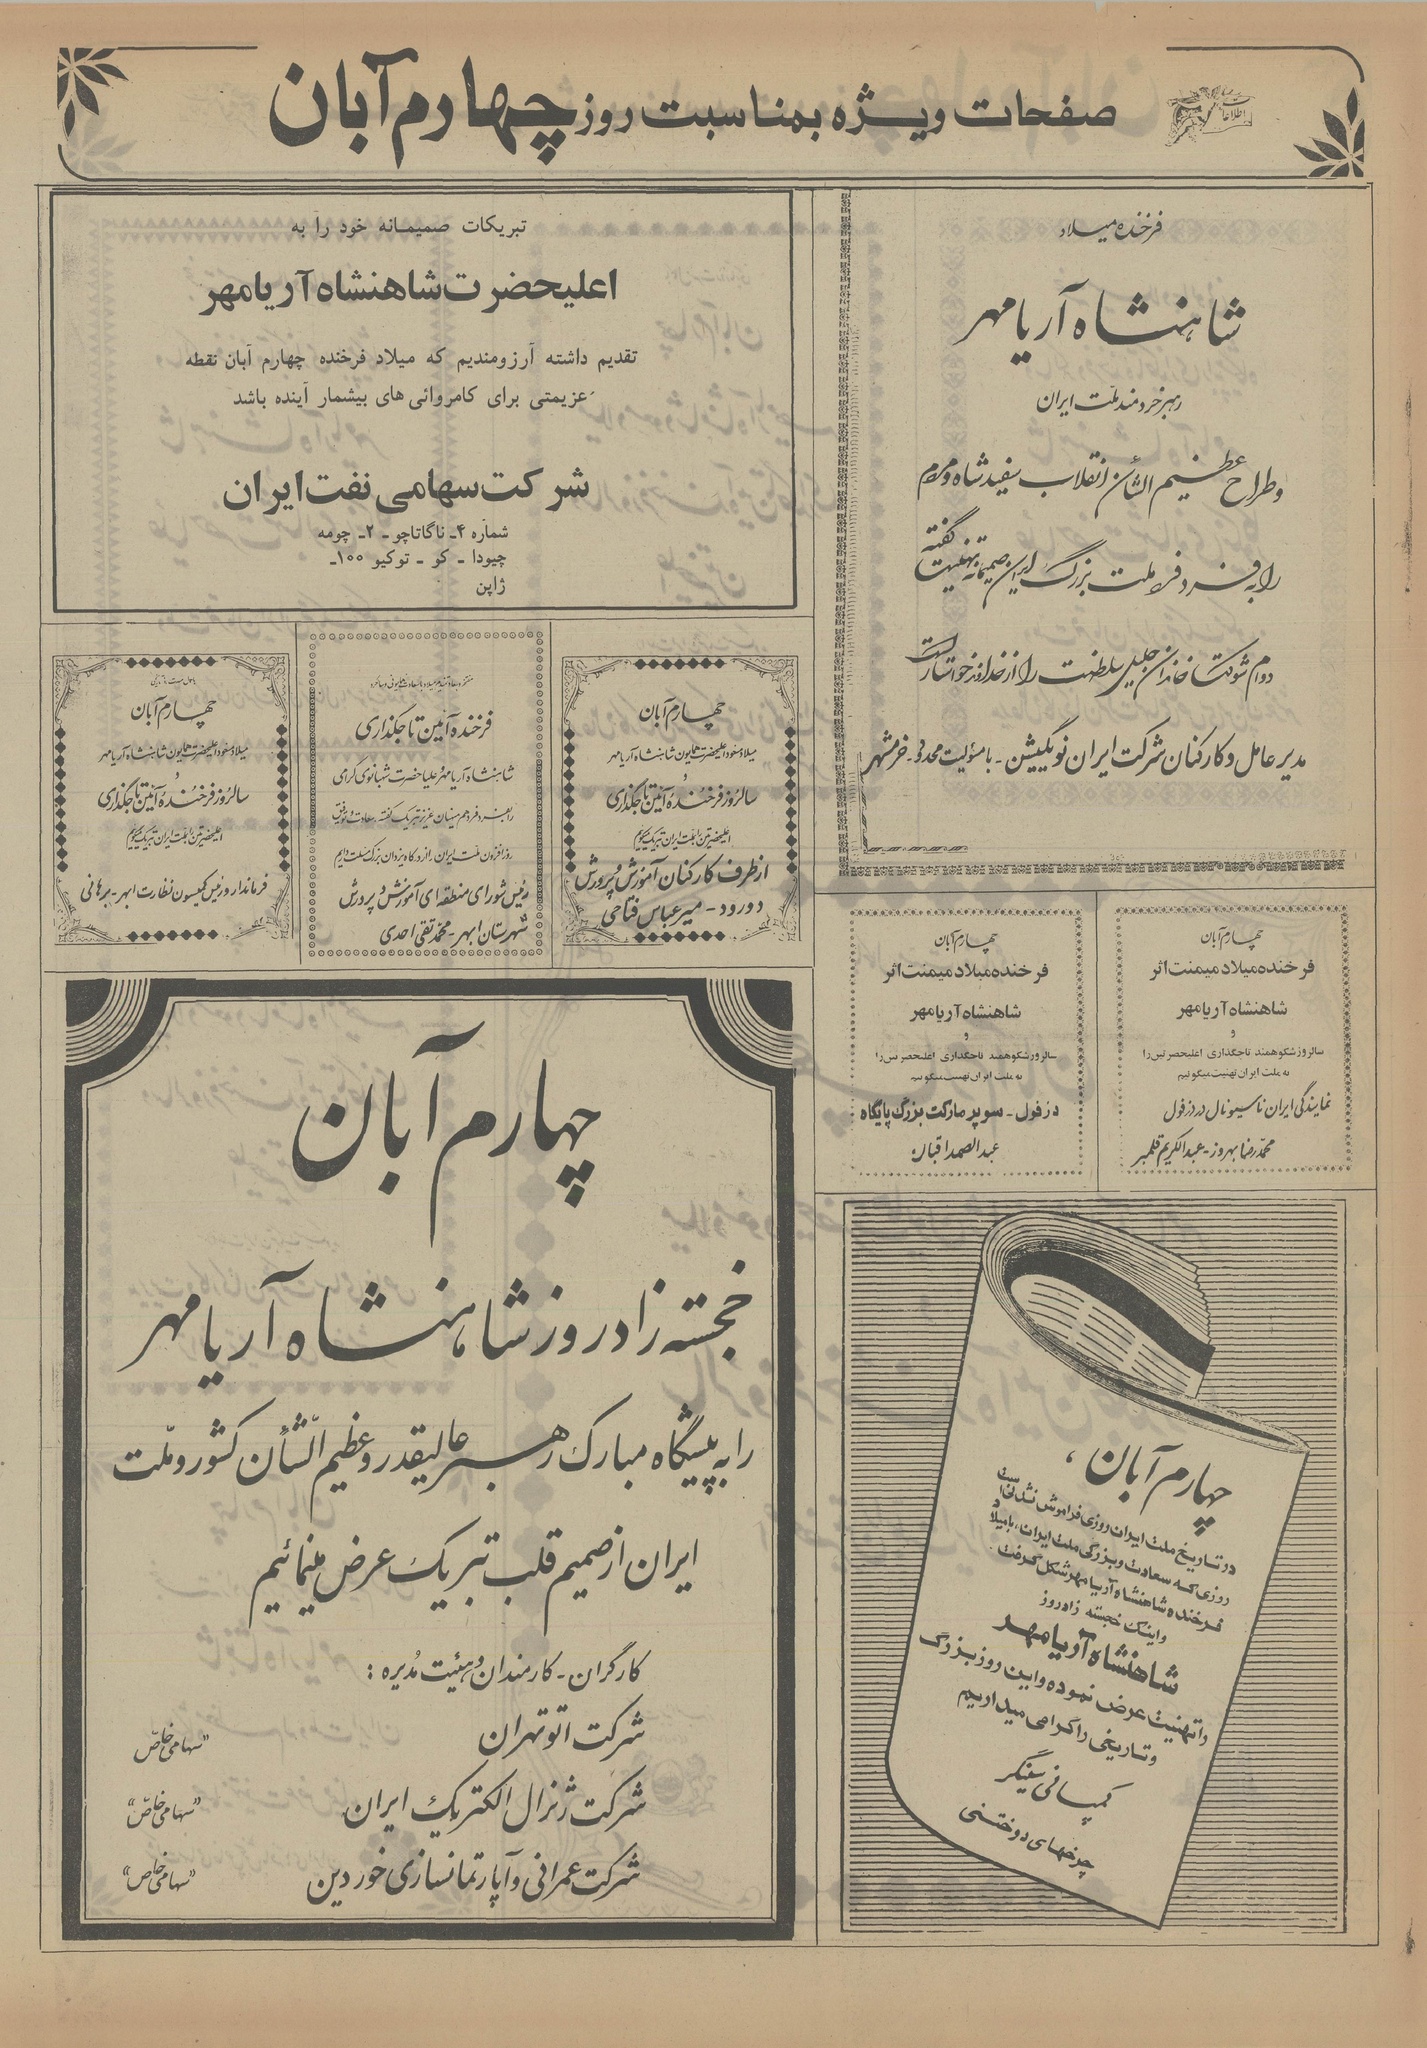 صفحات ویژه بمناسبت روز چهارم آبان
اطلاعات
فرخنده میلاد
شاهنشاه آریامهر
رهبر خردمند ملت ایران
و طراح عظیم الشأن انقلاب سفید شاه و مردم
را به فرد فرد ملت بزرگ ایران صمیمانه تهنیت گفته
دوام شوکت خاندان جلیل سلطنت را از خداوند خواستار است
مدیر عامل و کارکنان شرکت ایران نویگیشن - با مسئولیت محدود - خرمشهر
تبریکات صمیمانه خود را به
اعلیحضرت شاهنشاه آریامهر
تقدیم داشته آرزومندیم که میلاد فرخنده چهارم آبان نقطه
عزیمتی برای کامروائی های بیشمار آینده باشد
شرکت سهامی نفت ایران
شماره ۴ـ ناگاتاچو ـ ۲ـ چومه
چیودا ـ کو ـ توکیو ۱۰۰ـ
ژاپن
چهارم آبان
میلاد مسعود اعلیحضرت همایون شاهنشاه آریامهر
و
سالروز فرخنده آئین تاجگذاری
اعلیحضرتین را بملت ایران تبریک میگویم
از طرف کارکنان آموزش و پرورش
دورود - میرعباس فتاحی
فرخنده آئین تاجگذاری
شاهنشاه آریامهر و علیاحضرت شهبانوی گرامی
را بفرد فرد هم میهنان عزیز تبریک گفته سعادت و توفیق
روزافزون ملت ایران را از درگاه یزدان بزرگ مسئلت دارم
رئیس شورای منطقه ای آموزش و پرورش
شهرستان ابهر - محمد تقی احدی
چهارم آبان
میلاد مسعود اعلیحضرت همایون شاهنشاه آریامهر
و
سالروز فرخنده آئین تاجگذاری
اعلیحضرتین را بملت ایران تبریک میگویم
فرماندار و رئیس کمیسیون نظارت ابهر - برهانی
چهارم آبان
فرخنده میلاد میمنت اثر
شاهنشاه آریامهر
و
سالروز شکوهمند تاجگذاری اعلیحضرتین را
به ملت ایران تهنیت میگوئیم
نمایندگی ایران ناسیونال در دزفول
محمد رضا بهروز - عبدالکریم قلمبر
چهارم آبان
فرخنده میلاد میمنت اثر
شاهنشاه آریامهر
و
سالروز شکوهمند تاجگذاری اعلیحضرتین را
به ملت ایران تهنیت میگوئیم
دزفول - سوپر مارکت بزرگ پایگاه
عبدالصمد اقبال
چهارم آبان
خجسته زادروز شاهنشاه آریامهر
را به پیشگاه مبارک رهبر عالیقدر و عظیم الشأن کشور و ملت
ایران از صمیم قلب تبریک عرض مینمائیم
کارگران - کارمندان و هیئت مدیره :
شرکت اتو تهران «سهامی خاص»
شرکت ژنرال الکتریک ایران «سهامی خاص»
شرکت عمرانی و آپارتمانسازی خوردین «سهامی خاص»
چهارم آبان،
در تاریخ ملت ایران روزی فراموش نشدنی است
روزی که سعادت و بزرگی ملت ایران، با میلاد
فرخنده شاهنشاه آریامهر شکل گرفت
و اینک خجسته زادروز
شاهنشاه آریامهر
را تهنیت عرض نموده و این روز بزرگ
و تاریخی را گرامی میداریم
کمپانی سینگر
چرخهای دوختنی